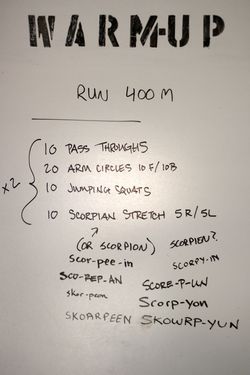 WARM-UP
RUN 400 M
x2
10 PASS THROUGHS
20 ARM CIRCLES 10F/10B
10 JUMPING SQUATS
10 SCORPIAN STRETCH 5R/5L
(OR SCORPION)
SCORPIEN?
Scor-pee-in
SCORPY-IN
SCO-REP-AN
SCORE-P-UN
skor-peon
Scorp-yon
SKOARPEEN
SKOWRP-YUN